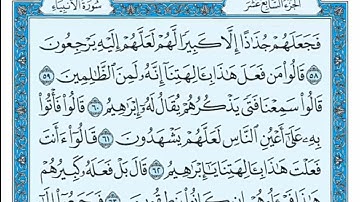 الجزء السابع عشر سورة الأنبياء
فَجَعَلَهُمْ جُذَاذًا إِلَّا كَبِيرًا لَّهُمْ لَعَلَّهُمْ إِلَيْهِ يَرْجِعُونَ
٥٨ قَالُوا۟ مَن فَعَلَ هَٰذَا بِـَٔالِهَتِنَآ إِنَّهُۥ لَمِنَ ٱلظَّٰلِمِينَ ٥٩
قَالُوا۟ سَمِعْنَا فَتًى يَذْكُرُهُمْ يُقَالُ لَهُۥٓ إِبْرَٰهِيمُ ٦٠ قَالُوا۟ فَأْتُوا۟
بِهِۦ عَلَىٰٓ أَعْيُنِ ٱلنَّاسِ لَعَلَّهُمْ يَشْهَدُونَ ٦١ قَالُوٓا۟ ءَأَنتَ
فَعَلْتَ هَٰذَا بِـَٔالِهَتِنَا يَٰٓإِبْرَٰهِيمُ ٦٢ قَالَ بَلْ فَعَلَهُۥ كَبِيرُهُمْ